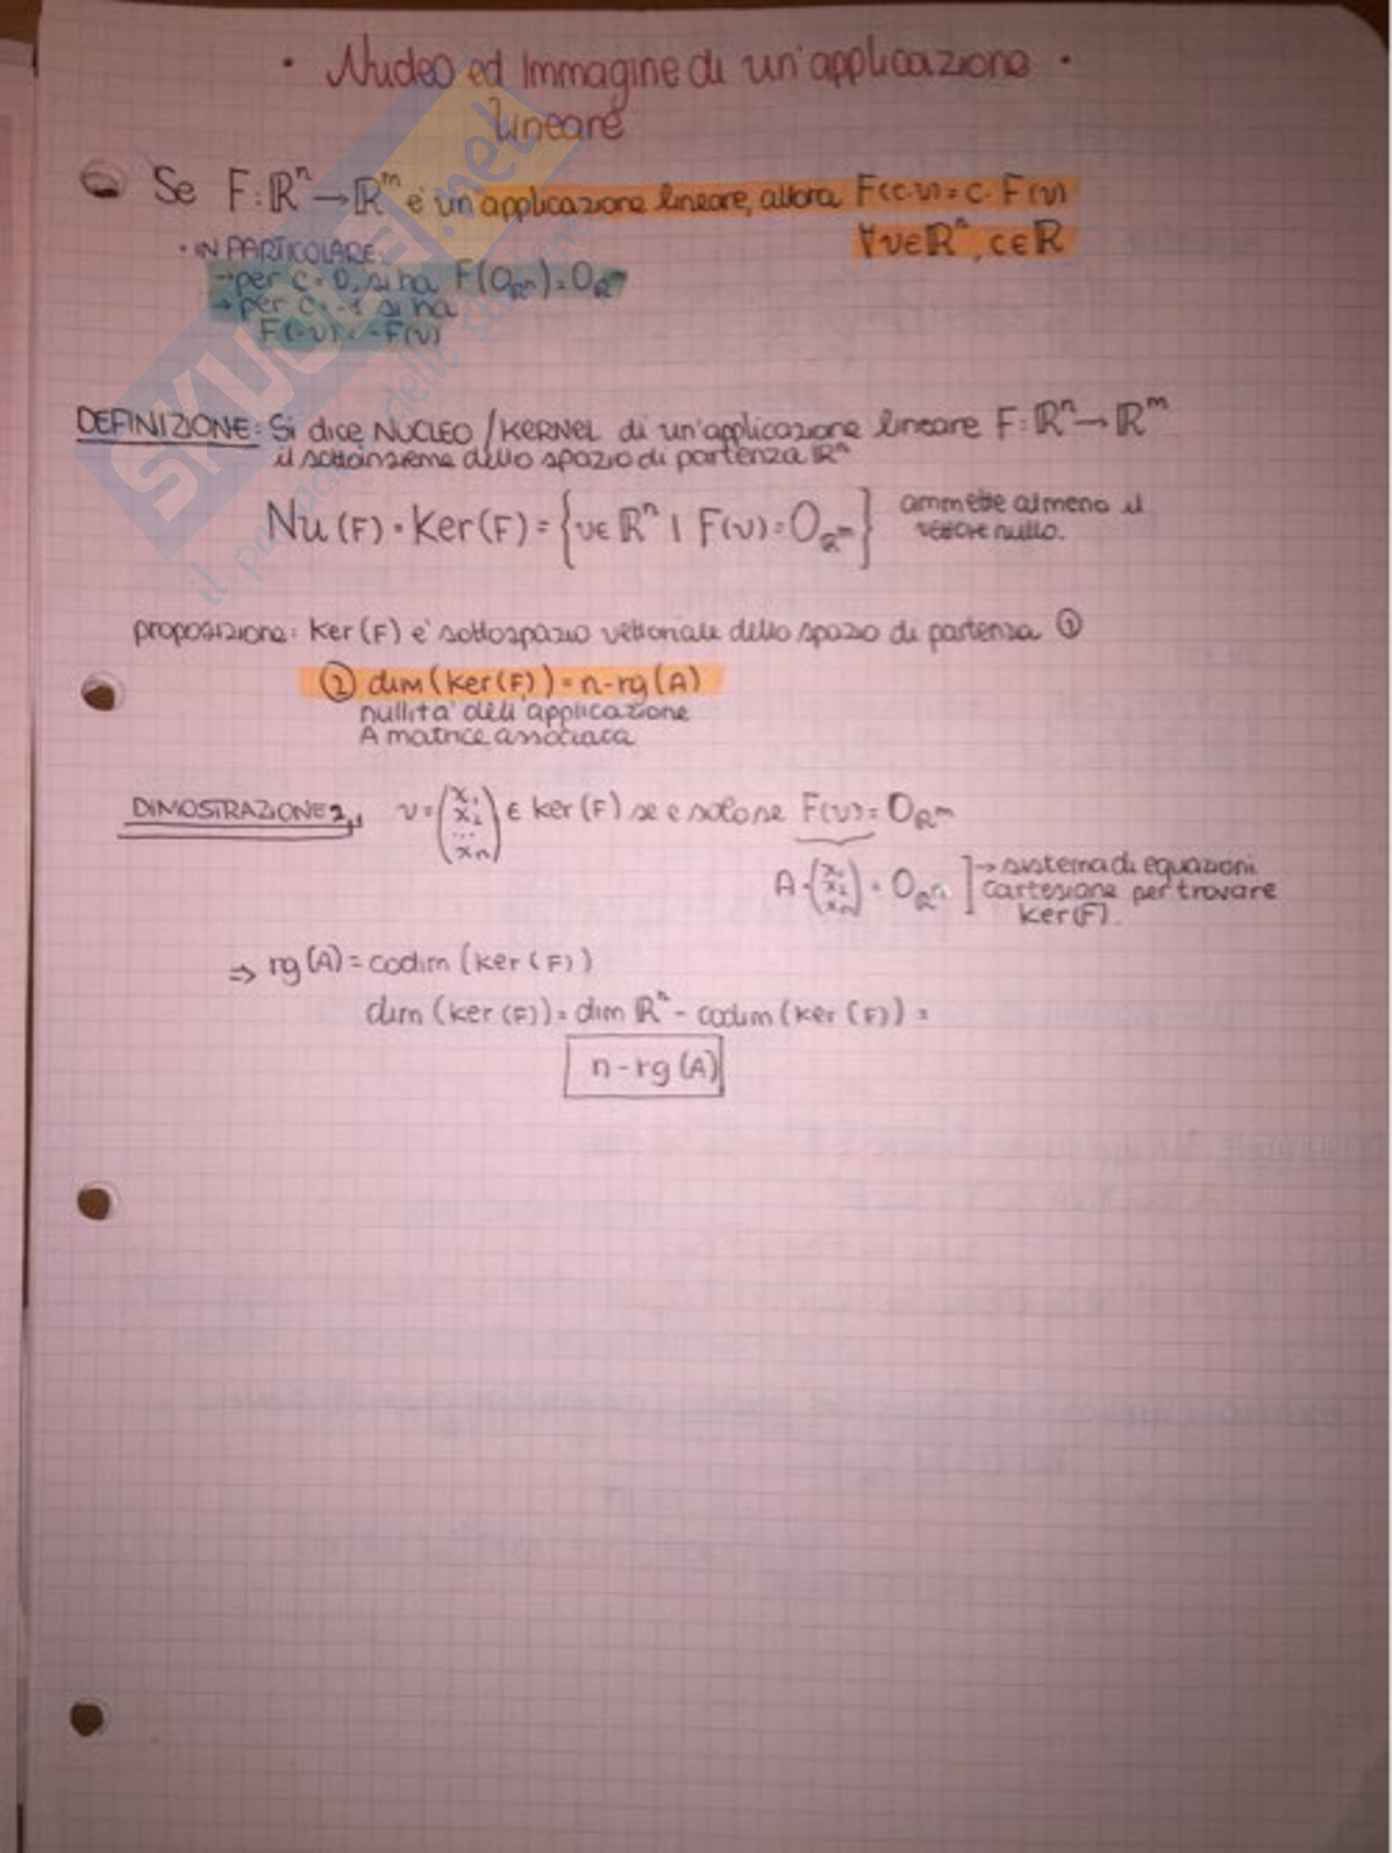 · Nucleo ed Immagine di un'applicazione ·
lineare
Se F: ℝⁿ → ℝᵐ è un'applicazione lineare, allora F(c·v) = c·F(v)
∀v∈ℝⁿ, c∈ℝ
· IN PARTICOLARE:
→ per c=0, si ha F(0_ℝⁿ) = 0_ℝᵐ
→ per c=-1 si ha
F(-v) = -F(v)
DEFINIZIONE: Si dice NUCLEO / KERNEL di un'applicazione lineare F: ℝⁿ → ℝᵐ
il sottoinsieme dello spazio di partenza ℝⁿ
Nu(F) = Ker(F) = {v∈ℝⁿ | F(v) = 0_ℝᵐ} ammette almeno il
vettore nullo.
proposizione: Ker(F) è sottospazio vettoriale dello spazio di partenza ①
② dim(Ker(F)) = n-rg(A)
nullità dell'applicazione
A matrice associata
DIMOSTRAZIONE 2, v = (x₁ x₂ ... xₙ) ∈ Ker(F) se e solo se F(v) = 0_ℝᵐ
A·(x₁ x₂ xₙ) = 0_ℝᵐ ] → sistema di equazioni
cartesiane per trovare
Ker(F).
⇒ rg(A) = codim(Ker(F))
dim(Ker(F)) = dim ℝⁿ - codim(Ker(F)) =
n-rg(A)
SKUOLA.net
il portale dello studente